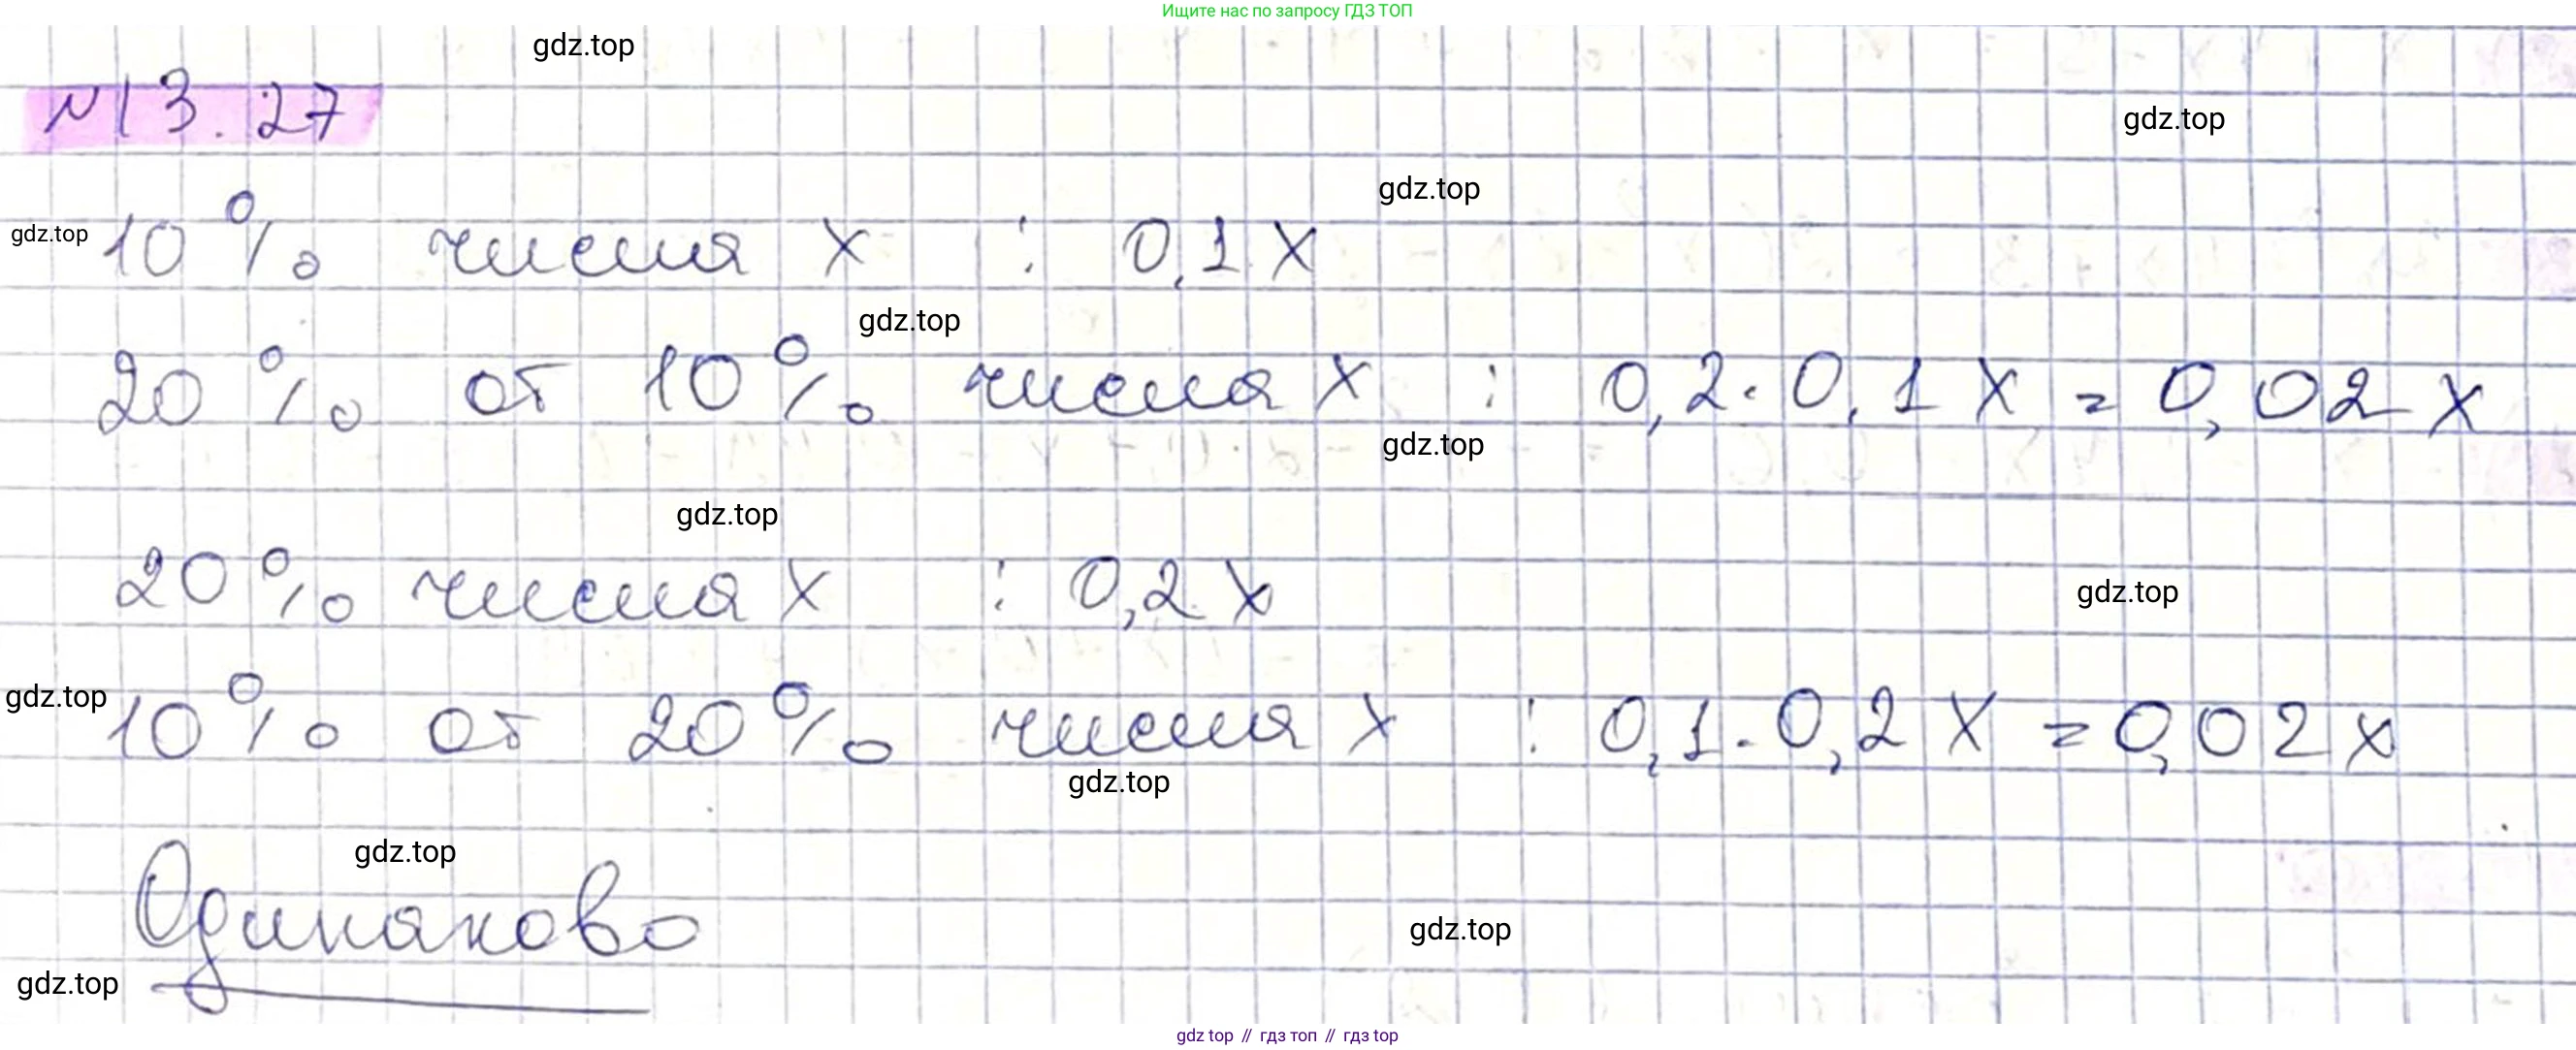 Ищите нас по запросу ГДЗ ТОП
gdz.top
N13.27
gdz.top
gdz.top
gdz.top
10% числа x : 0,1x
gdz.top
20% от 10% числа x : 0,2·0,1x=0,02x
gdz.top
gdz.top
20% числа x : 0,2x
gdz.top
gdz.top
10% от 20% числа x : 0,1·0,2x=0,02x
gdz.top
gdz.top
Одинаково
gdz.top
gdz.top
gdz top // гдз топ // гдз top